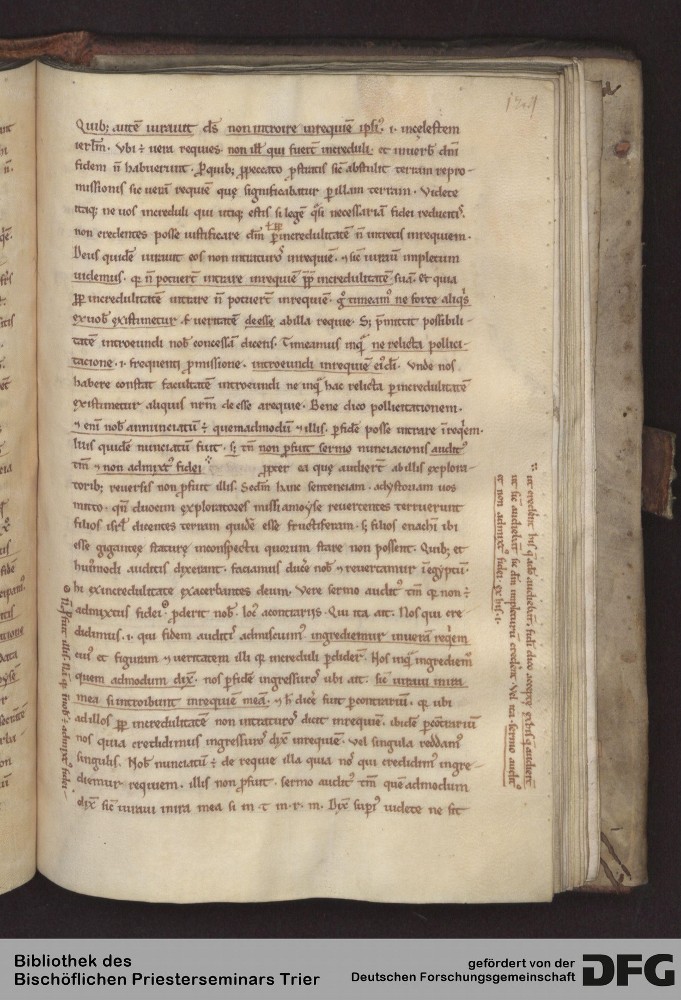 Quib; autē iurauit dſ non introire in requiē ipsi'. i. in celestem
ierl'm. Vbi ÷ uera requies non illi qui fuert increduli. et in uerb dni
fidem n habuerunt. P quib; p peccato pstratis sic abstulit terram repro-
missionis sic uerā requiē que significabatur p illam terram. Videte
itaq; ne uos increduli qui utiq; estis si legē
non credentes posse iustificare p incredulitatē n intretis in requiem.
Deus quidē iurauit eos non intraturos in requiē. ⁊ sic iuratū impletum
uidemus. quia n potuert intrare in requiē ppt incredulitatē suā. Et quia
ppt incredulitatē intrare n potuert in requiē. g timeam' ne forte aliq's
ex uob existimetur a ueritate deesse ab illa requie. S; pmittit possibili-
tatē introeundi nob concessā dicens. Timeamus inq' ne relicta pollici-
tacione. i. frequenti pmissione. introeundi in requiē ei'. Vnde nos
habere constat facultatē introeundi ne inq' hac relicta p incredulitatē
existimetur aliquis nrm deesse a requie. Bene dico pollicitationem.
⁊ eni nob annunciatū ÷ quemadmodū ⁊ illis. p fidē posse intrare in req'em.
Illis quidē nunciatū fuit. s; tn non pfuit sermo nunciacionis audit'
tm ⁊ non admixt' fidei ppter ea que audiert ab illis explora-
torib; reuersis non pfuit illis. Scdm hanc sentenciam. ad ystoriam uos
mitto. qn duocim exploratores missi a moyse reuertentes terruerunt
filios isrl dicentes terram quidē esse fructiferam. s; filios enachim ibi
esse giganteę staturę in conspectu quorum stare non possent. Quib; et
hui'modi auditis dixerant. faciamus ducē nob ⁊ reuertamur in egyptū.
hi ex incredulitate exacerbantes deum. Vere sermo audit' tm quia non ÷
admixtus fidei pderit nob. loc' a contrariis. Qui ita ait. Nos qui cre-
didimus. i. qui fidem auditui admiscuim' ingrediemur in ueram req'em
cui' et figuram ⁊ ueritatem illi quia increduli pdidert. Nos inq' ingrediem'
quem admodum dix. nos p fidē ingressuros ubi ait. sic iuraui in ira
mea si introibunt in requiē meā. ⁊ h dicere fuit p contrariū. quia ubi
ad illos ppt incredulitatē non intraturos dicit in requiē. ibidē p contrariū
nos quia credidimus ingressuros dix in requiē. Vel singula reddam'
singulis. Nob nunciatū ÷ de requie illa quia nos qui credidim' ingre-
diemur requiem. illis non pfuit. sermo audit' tm quē admodum
dix sic iuraui in ira mea si in · t in · r · m. Dix sup' uidete ne sit
ut crederent his q' a deo audiebant. fidei dico accepte ex his q' audiert
ut sic audiebant sic dm impleturū crederent. Vel ita. sermo audit'
et non admixt' fidei ex his. i.
n pfuit illis. admixt' fidei
Bibliothek des
Bischöflichen Priesterseminars Trier
gefördert von der
Deutschen Forschungsgemeinschaft
DFG